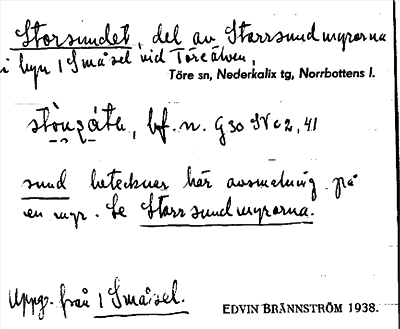 Storsundet, del av Starrsundmyrarna
i byn 1 Småsel vid Töreälven,
Töre sn, Nederkalix tg, Norrbottens l.
bf. n. G30 SV c 2, 41
sund betecknar här avsmalning på
en myr. Se Starrsundmyrarna.
Uppg. från 1 Småsel.
EDVIN BRÄNNSTRÖM 1938.